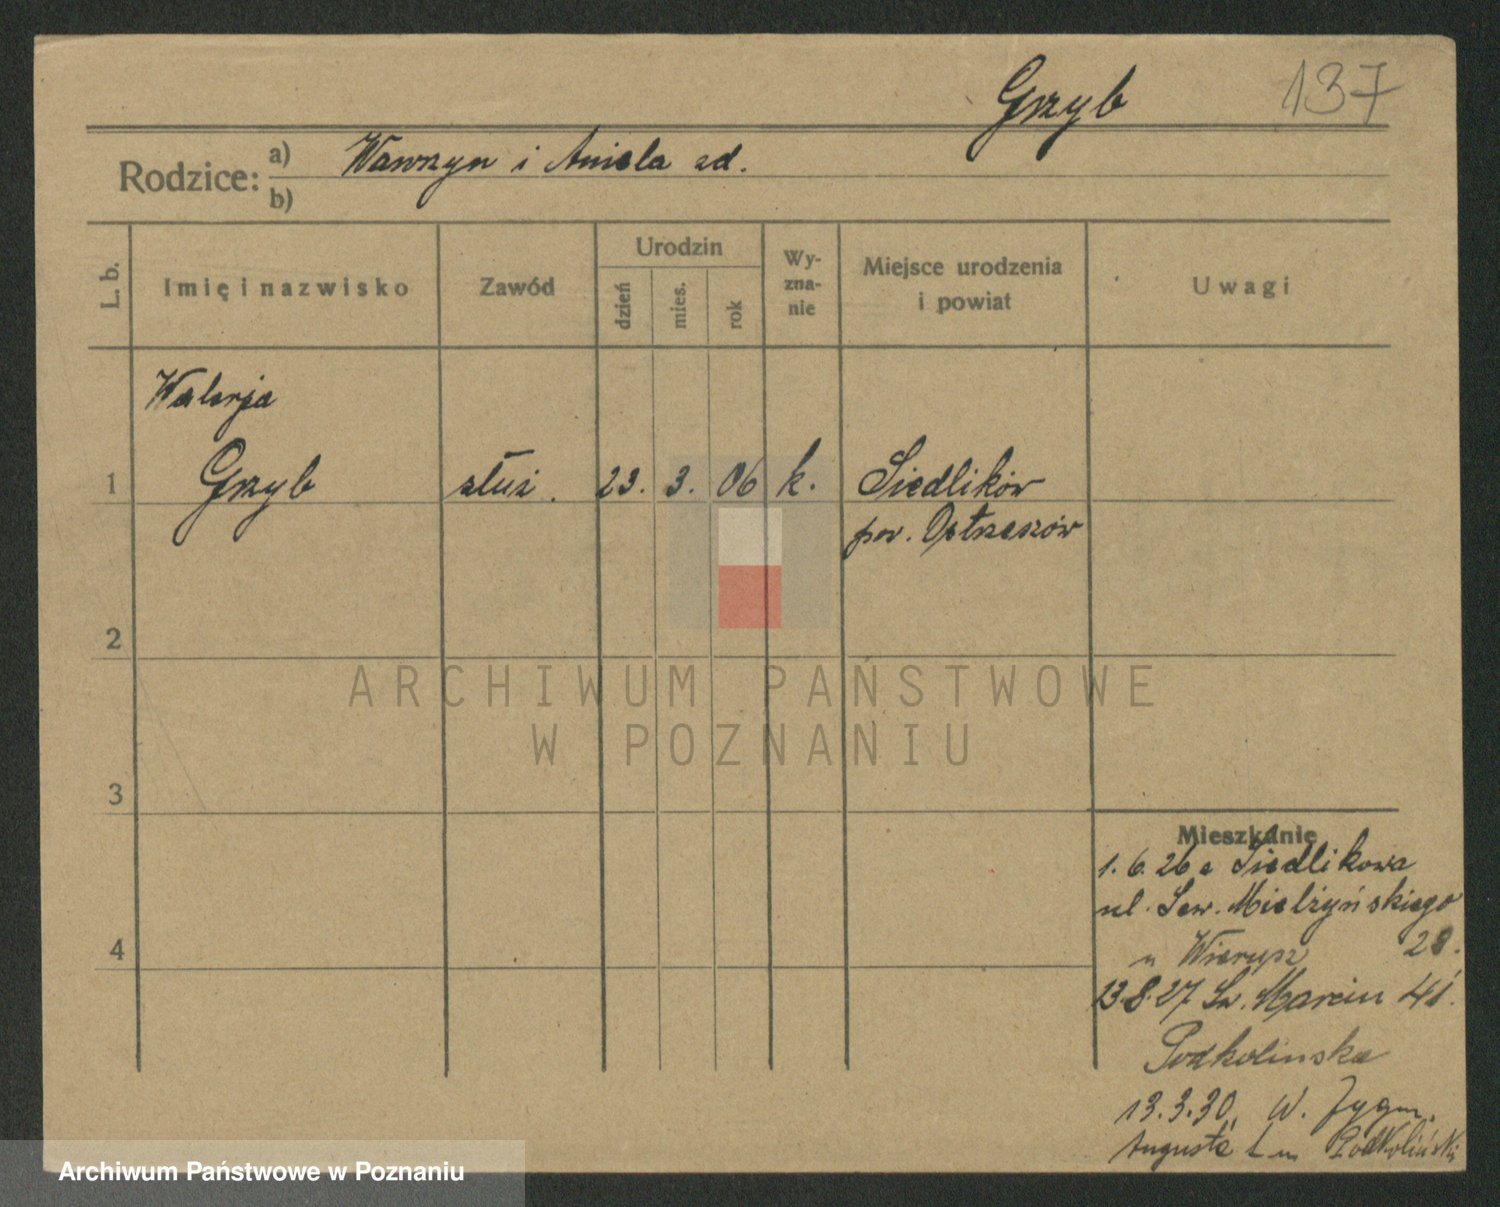 Grzyb 137
Rodzice: a) Wawrzyn i Aniela zd.
b)
L. b. Imię i nazwisko Zawód Urodzin dzień mies. rok Wy-zna-nie Miejsce urodzenia i powiat Uwagi
Walerja
1 Grzyb służ. 23. 3. 06 k. Siedlików
pow. Ostrzeszów
2
ARCHIWUM PAŃSTWOWE
W POZNANIU
3
Mieszkanie
1. 6. 26 z Siedlikowa
ul. Sew. Mielżyńskiego
4
u Wierysz 28.
13.8.27 Św. Marcin 41.
Podkolinska
13.3.30. W. Zygm.
Augusta 1 m Podkoliński
Archiwum Państwowe w Poznaniu